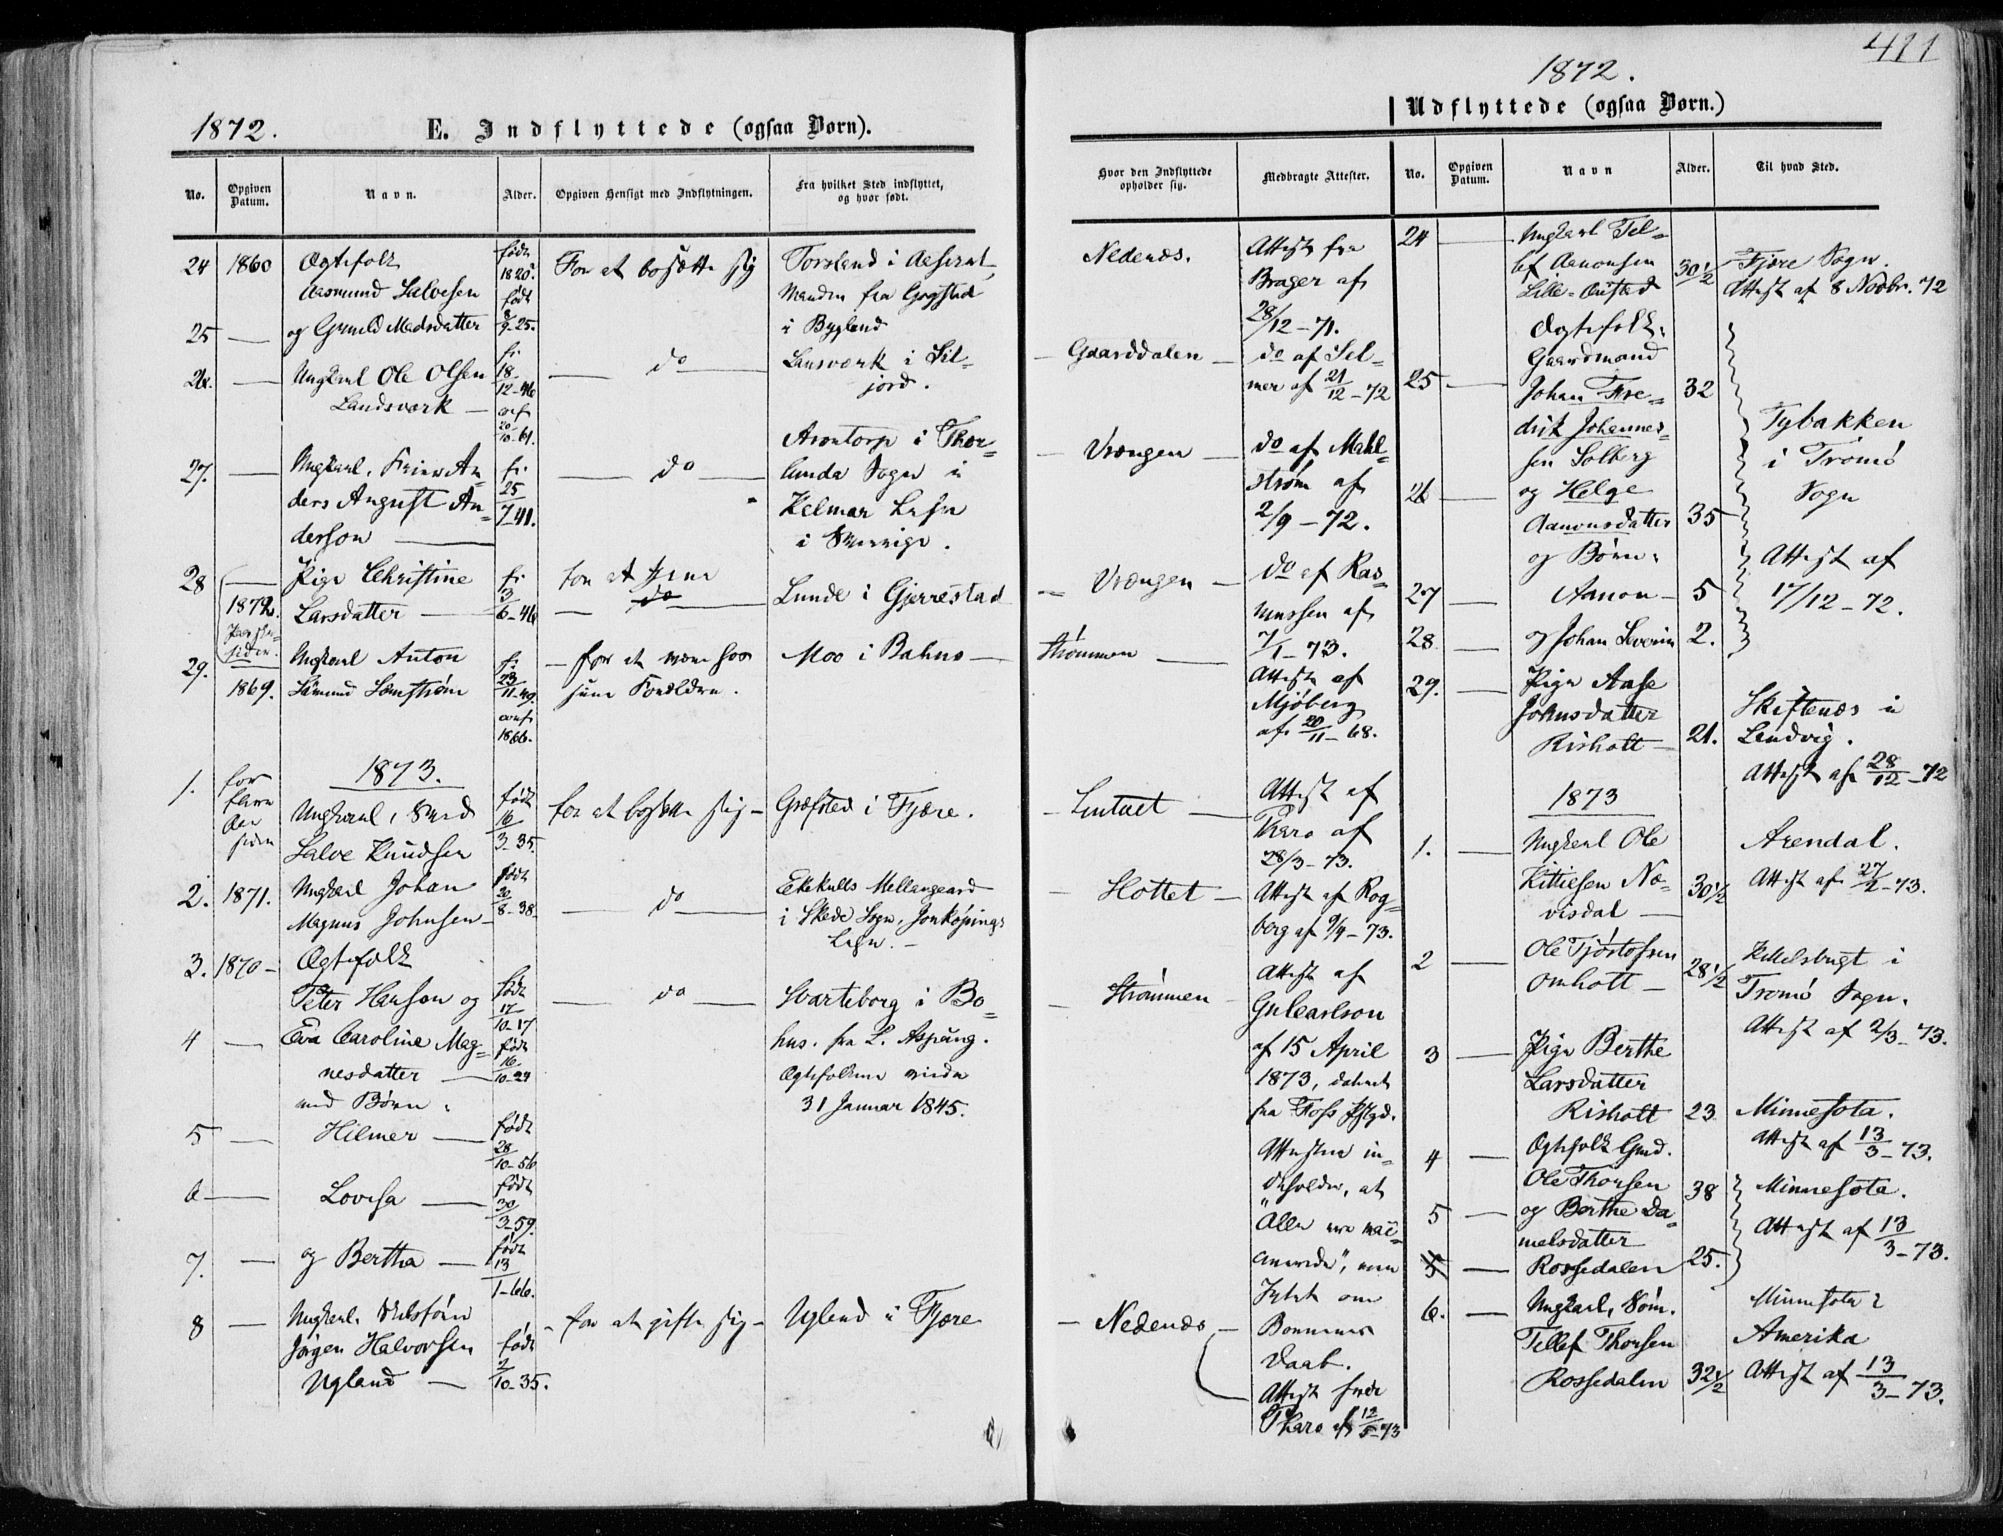 411
1872.
1872.
E. Indflyttede (ogsaa Børn).
Udflyttede (ogsaa Børn.)
No.
Opgiven Datum.
Navn.
Alder.
Opgiven Hensigt med Indflytningen.
Fra hvilket Sted indflyttet, og hvor født.
Hvor den Indflyttede opholder sig.
Medbragte Attester.
No.
Opgiven Datum.
Navn
Alder.
Til hvad Sted.
24 1860 Ogtefolk født 1820. For at bosætte sig
Aasmund Salvesen født
25 og Gunild Madsdatter 9-25.
Manden fra
i Bygland
Nedenæs.
Attest fra
af
28/12-71.
26. Ungkarl Ole Olsen 18-12-46 do
Landsværk
20/10-61.
Landsværk i Sil-
jord.
Gaarddalen
do af
mer af 21/12-72
27. Ungkarl, An-
ders August An-
derson
25/7-41.
do
lunda Sogn i
Kalmar
i
Vrængen
do af Mahl-
strøm af
2/9-72.
28 1872. Pige Christine
Larsdatter 13/6-46
for at tjene
do
Lunde i Gjerrestad
Vrængen
do af Ras-
mussen af
7/1-73.
29. 1869. Ungkarl Anton
23/11-49.
1866.
for at være hos
sine Forældre.
Moo i Bahus
Strømmen
Attest af
Mjöberg
af 20/11-68.
1873.
1. for
flere
Aar
siden
Ungkarl,
Salve Knudsen
født 16/3-35.
for at bosætte sig
Græfsted i Fjære.
Attest af
Tharo af
28/3-73.
2. 1871. Ungkarl Johan
Magnus Johnsen
født 20/8-38
do
Mellangaard
i Skede Sogn, Jonköpings
Lehn.
Slottet
Attest af Rog-
berg af 9/4-73.
3. 1870 Ogtefolk
Peter Hanson og født 17/10-17
4 Eva Caroline Mag-
nesdatter født 16/10-24
med Børn:
do
Svarteborg i Bo-
hus. fra L. Aspäng.
Ogtefolkene viede
31 Januar 1845.
Strømmen
Attest af
af 15 April
1873, dateret
fra Foss
Attesten in-
deholder, at
"Alla
om
Børnenes
Daab.
5 Hilmer født 28/10-56
6 Lovisa født 30/3-59.
7. og Bertha født 13/1-66.
8 Ungkarl,
Jörgen Halvorsen
Ugland
født 2/10-35.
for at gifte sig
Ugland i Fjære
Nedenæs
Attest fra
Tharo af 12/5-73
24 Ungkarl Tel-
lef Aanonsen
Lille-
30½
Fjære Sogn.
Attest af 8 Novbr. 72
Ogtefolk:
Gaardmand
25 Johan Fre- 32
drik Johannes-
sen Solberg
26 og Helge
Aanonsdatter 35
og Børn:
27 Aanon 5
28 og Johan Severin 2.
Tybakken
i Tromö
Sogn
Attest af
17/12-72.
29. Pige Aase
Johnsdatter
Risholt 21.
Skiftenes i
Landvig.
Attest af 28/12-72
1873
1. Ungkarl Ole
Kittilsen Næ-
visdal 30½
Arendal.
Attest af 27/2-73.
2 Ole Tjöstolfsen
Omholt 28½
Kittelsbugt i
Tromö Sogn.
Attest af 2/3-73.
3 Pige Berthe
Larsdatter
Risholt 23
Minnesota.
Attest af 13/3-73.
4 Ogtefolk Gmd.
Ole Thorsen 38
5 og Berthe Da-
nielsdatter
5 Rossedalen 25.
Minnesota.
Attest af 13/3-73.
6. Ungkarl, Söm.
Tellef Thorsen
Rossedalen 32½
Minnesota i
Amerika
Attest af 13/3-73.